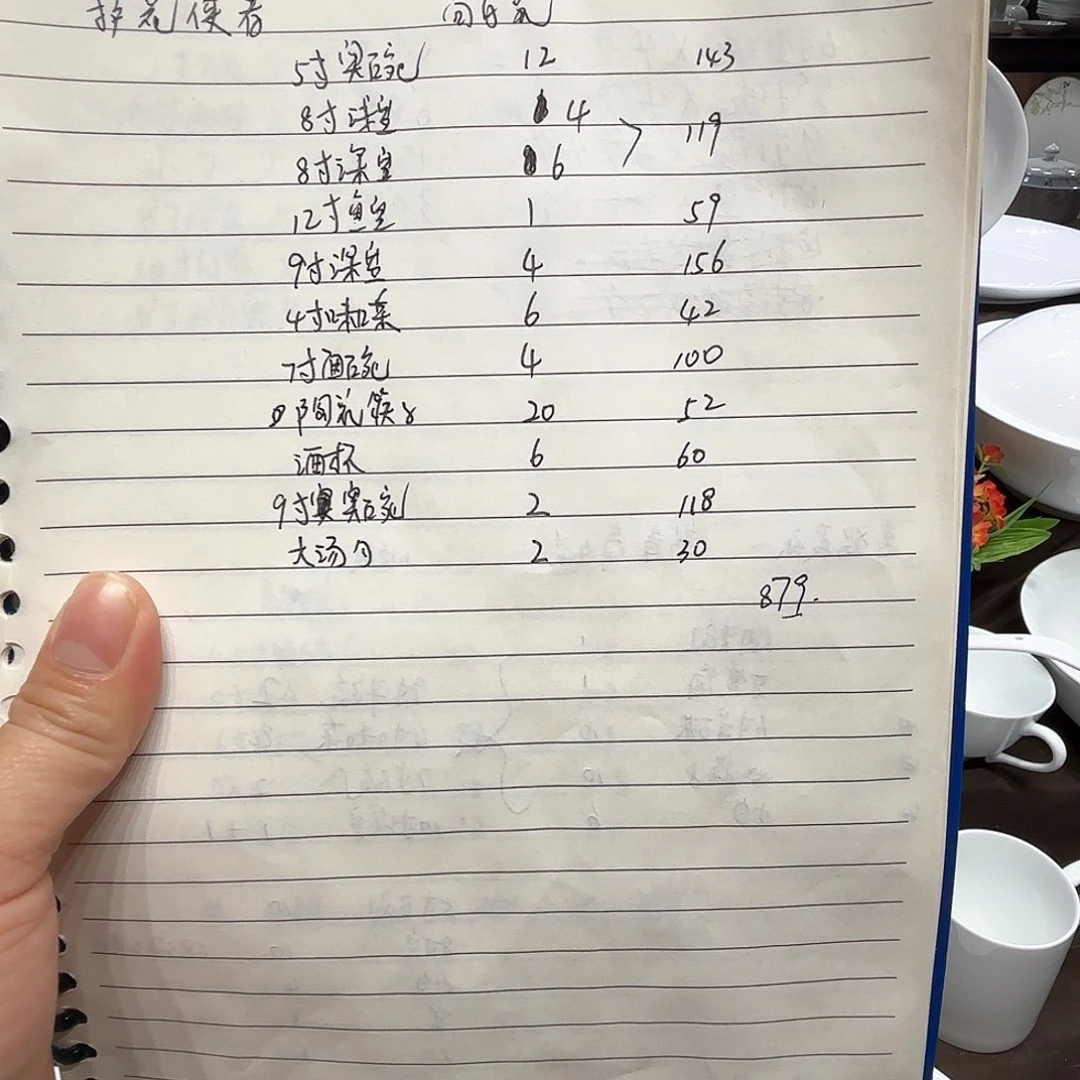 护花使者
5寸奥碗 12 143
8寸深宝 4
119
8寸深宝 6
12寸鱼宝 1 59
9寸深宝 4 156
4寸味菜 6 42
7寸面碗 4 100
陶瓷筷子 20 52
酒杯 6 60
9寸奥碗 2 118
大汤勺 2 30
879.